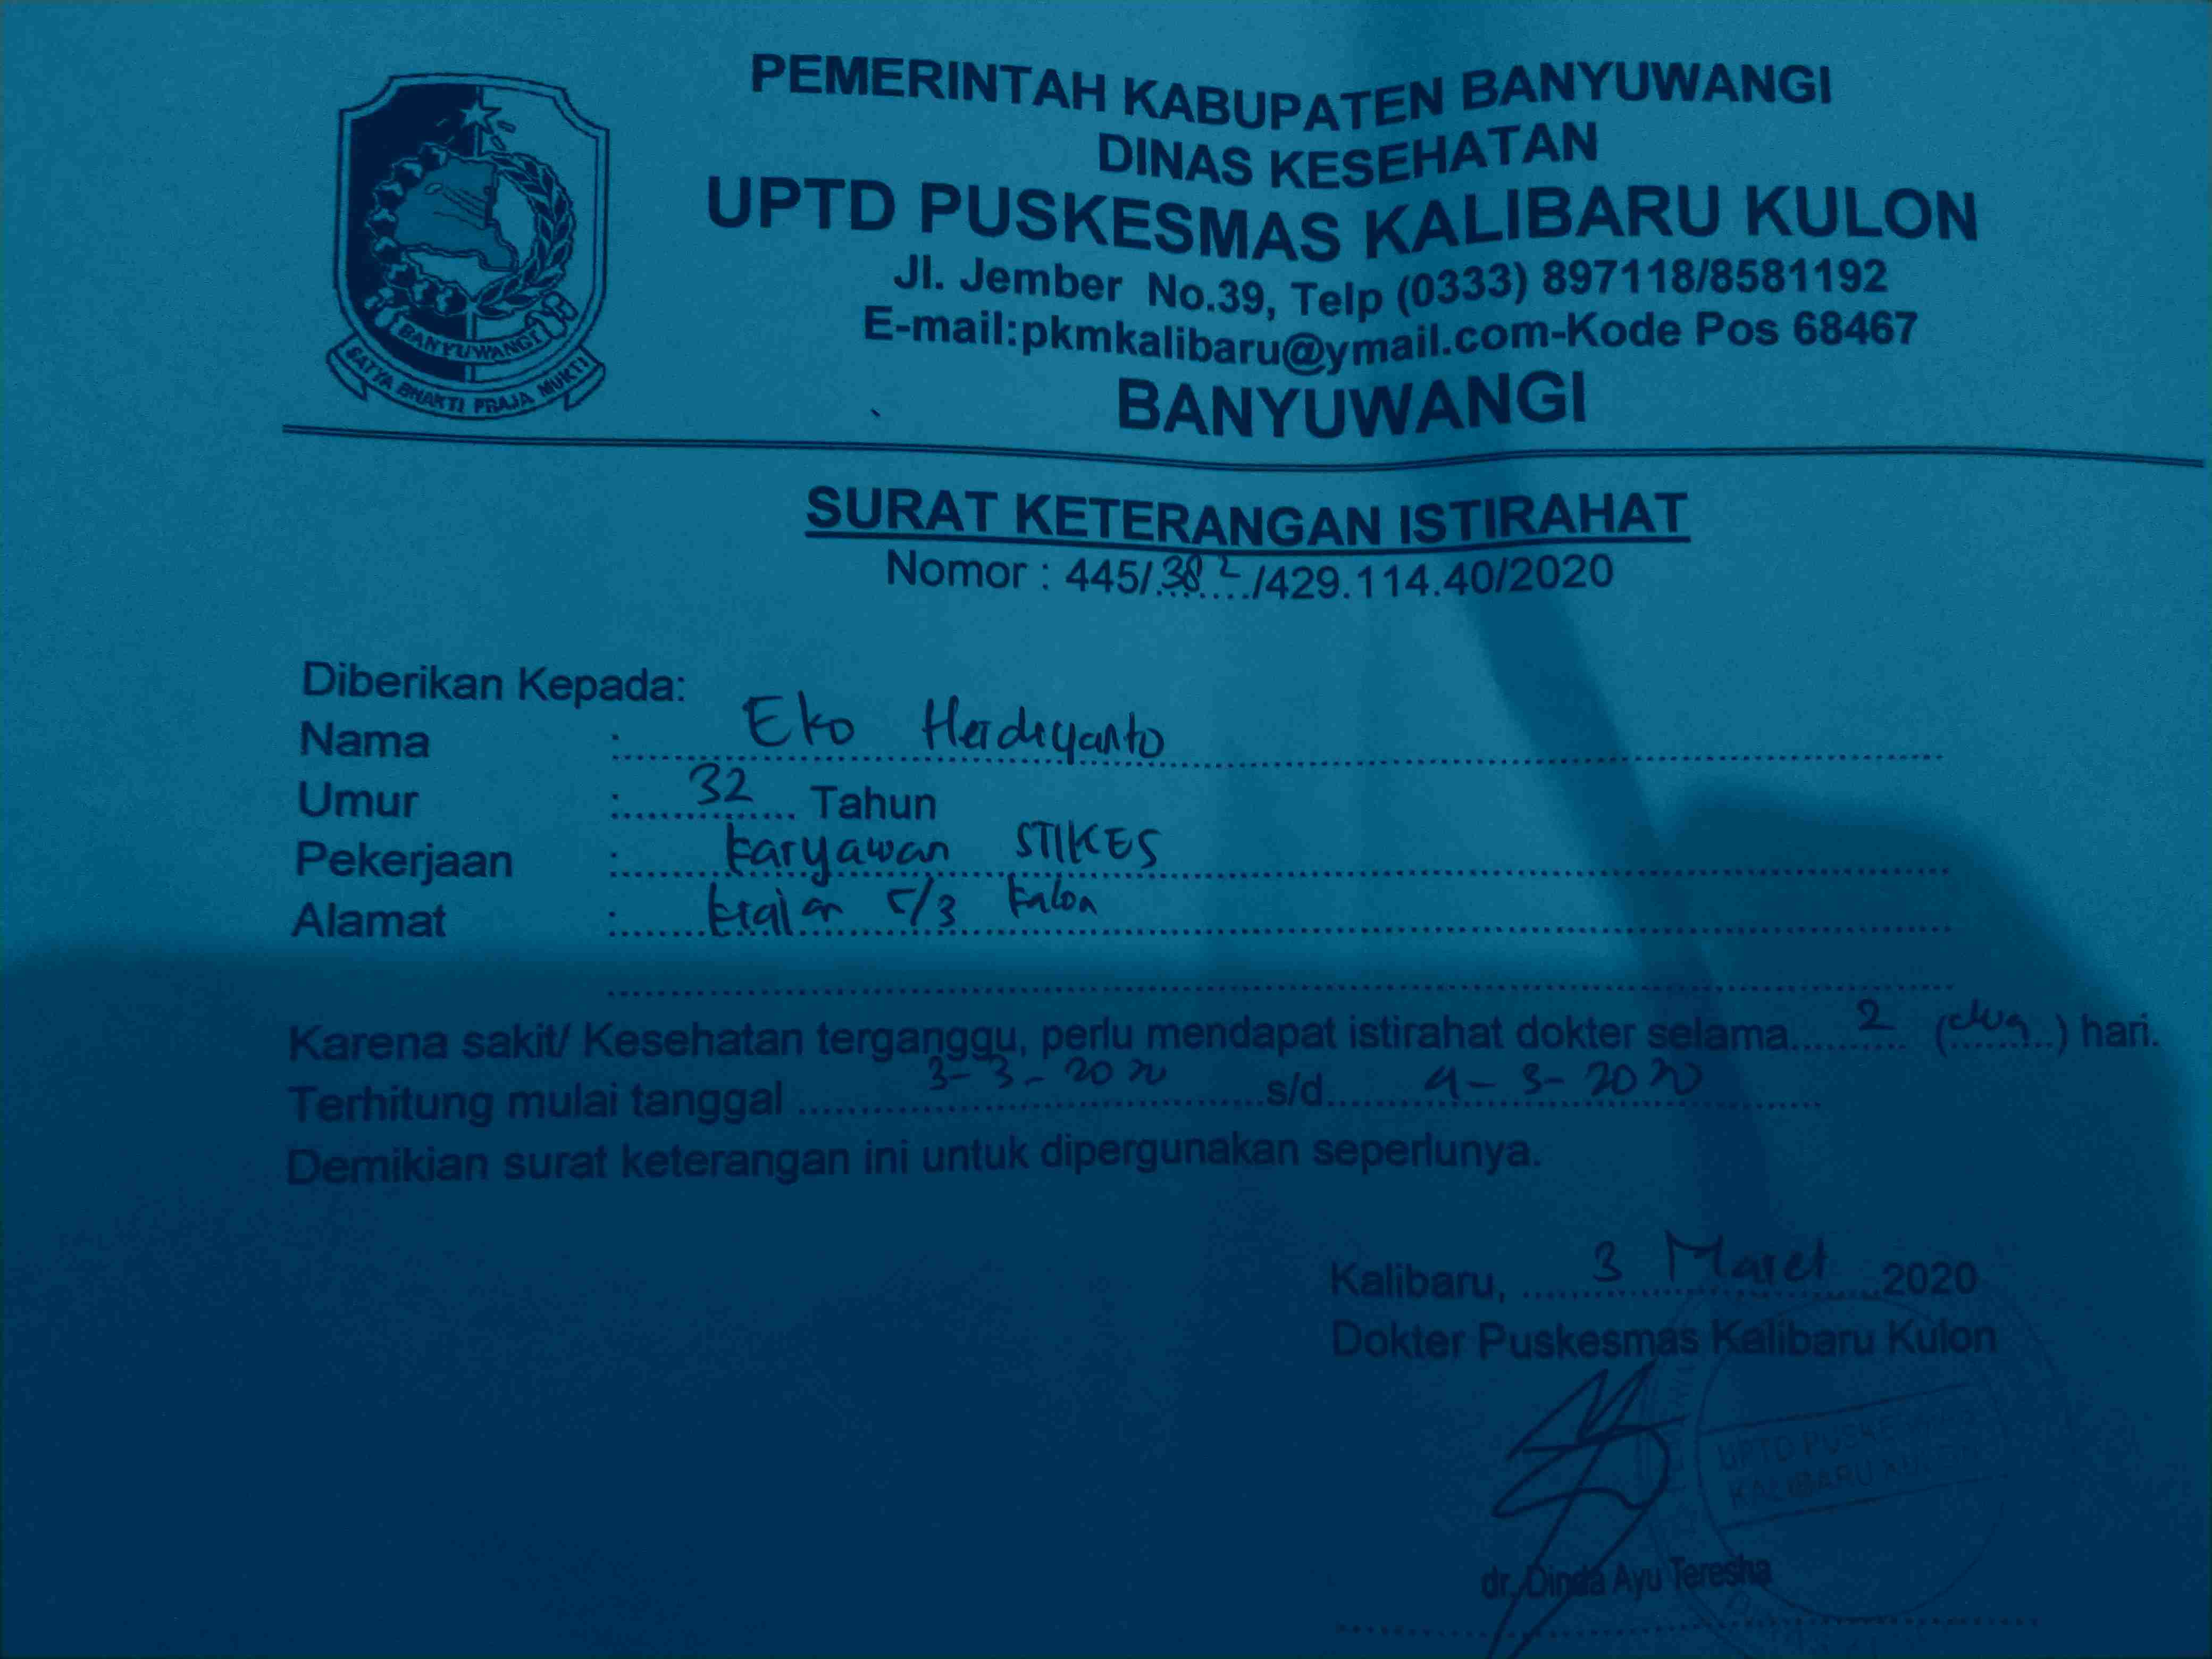 PEMERINTAH KABUPATEN BANYUWANGI
DINAS KESEHATAN
UPTD PUSKESMAS KALIBARU KULON
Jl. Jember No.39, Telp (0333) 897118/8581192
E-mail:pkmkalibaru@ymail.com-Kode Pos 68467
BANYUWANGI
BANYUWANGI
SATYA BHAKTI PRAJA MUKTI
SURAT KETERANGAN ISTIRAHAT
Nomor : 445/382/429.114.40/2020
Diberikan Kepada:
Nama : Eko Herdiyanto
Umur : 32 Tahun
Pekerjaan : Karyawan STIKES
Alamat : 5/3 Kulon
Karena sakit/ Kesehatan terganggu, perlu mendapat istirahat dokter selama 2 (dua) hari.
Terhitung mulai tanggal 3-3-2020 s/d 4-3-2020
Demikian surat keterangan ini untuk dipergunakan seperlunya.
Kalibaru, 3 Maret 2020
Dokter Puskesmas Kalibaru Kulon
UPTD PUSKESMAS
KALIBARU KULON
dr. Dinda Ayu Teresha